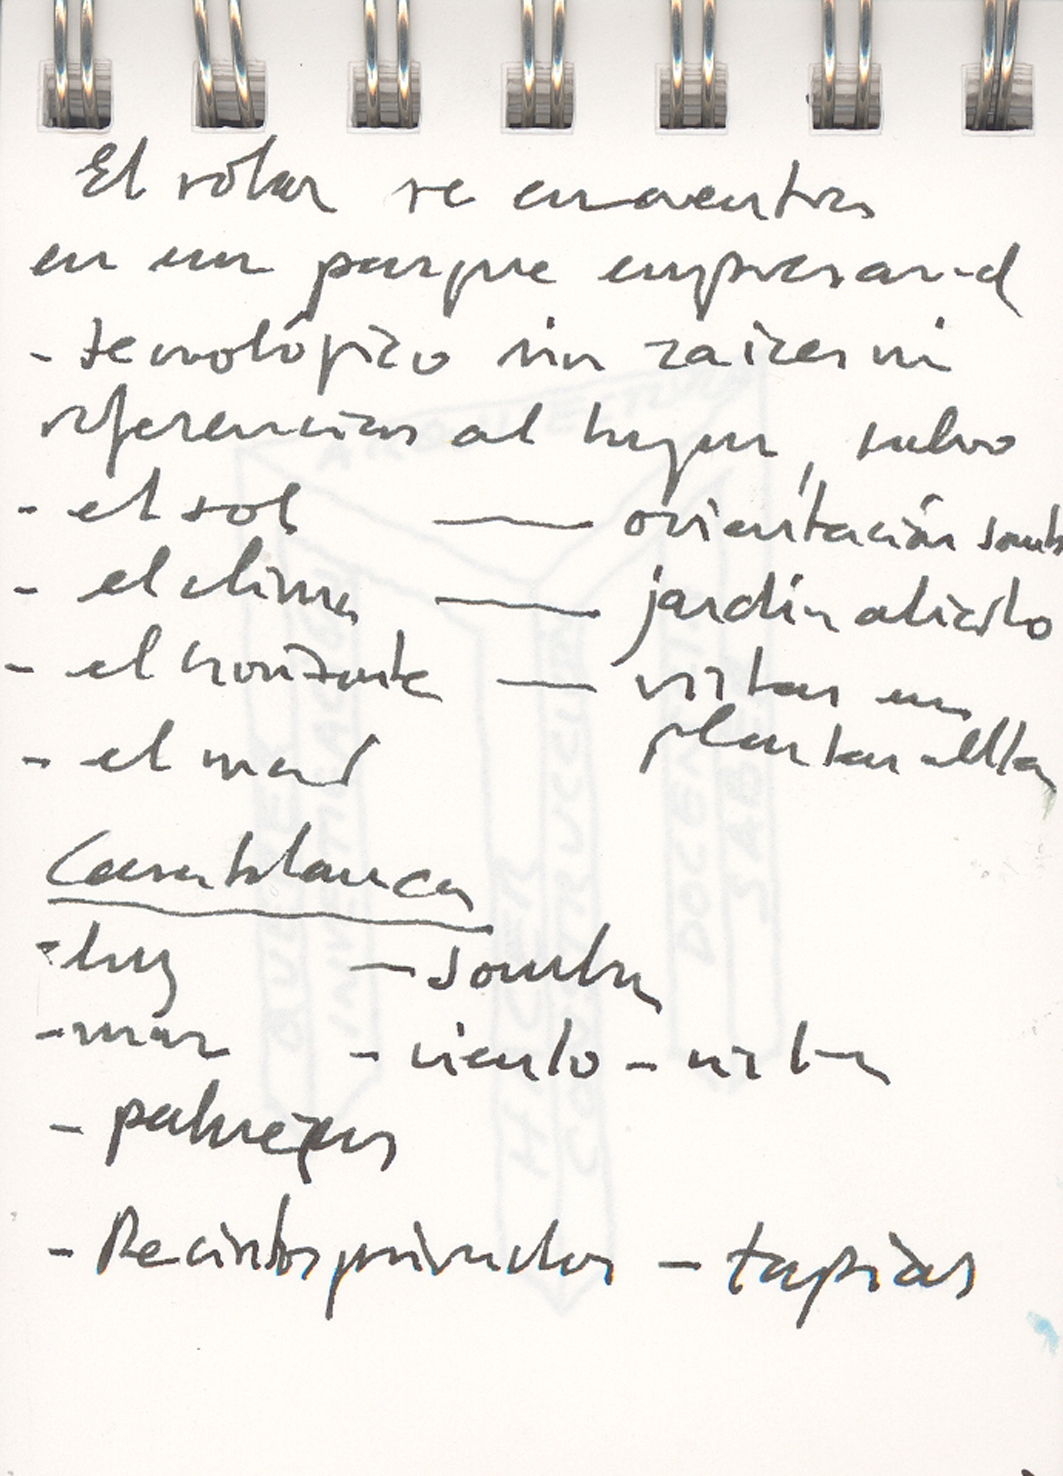 El solar se encuentra
en un parque empresarial
- tecnológico sin raices ni
referencias al lugar, salvo
- el sol — orientación sombra
- el clima — jardín abierto
- el horizonte — vistas en
plantas altas
- el mar
Casablanca
- luz — sombra
- mar - viento - vistas
- palmeras
- Recintos privados - tapias